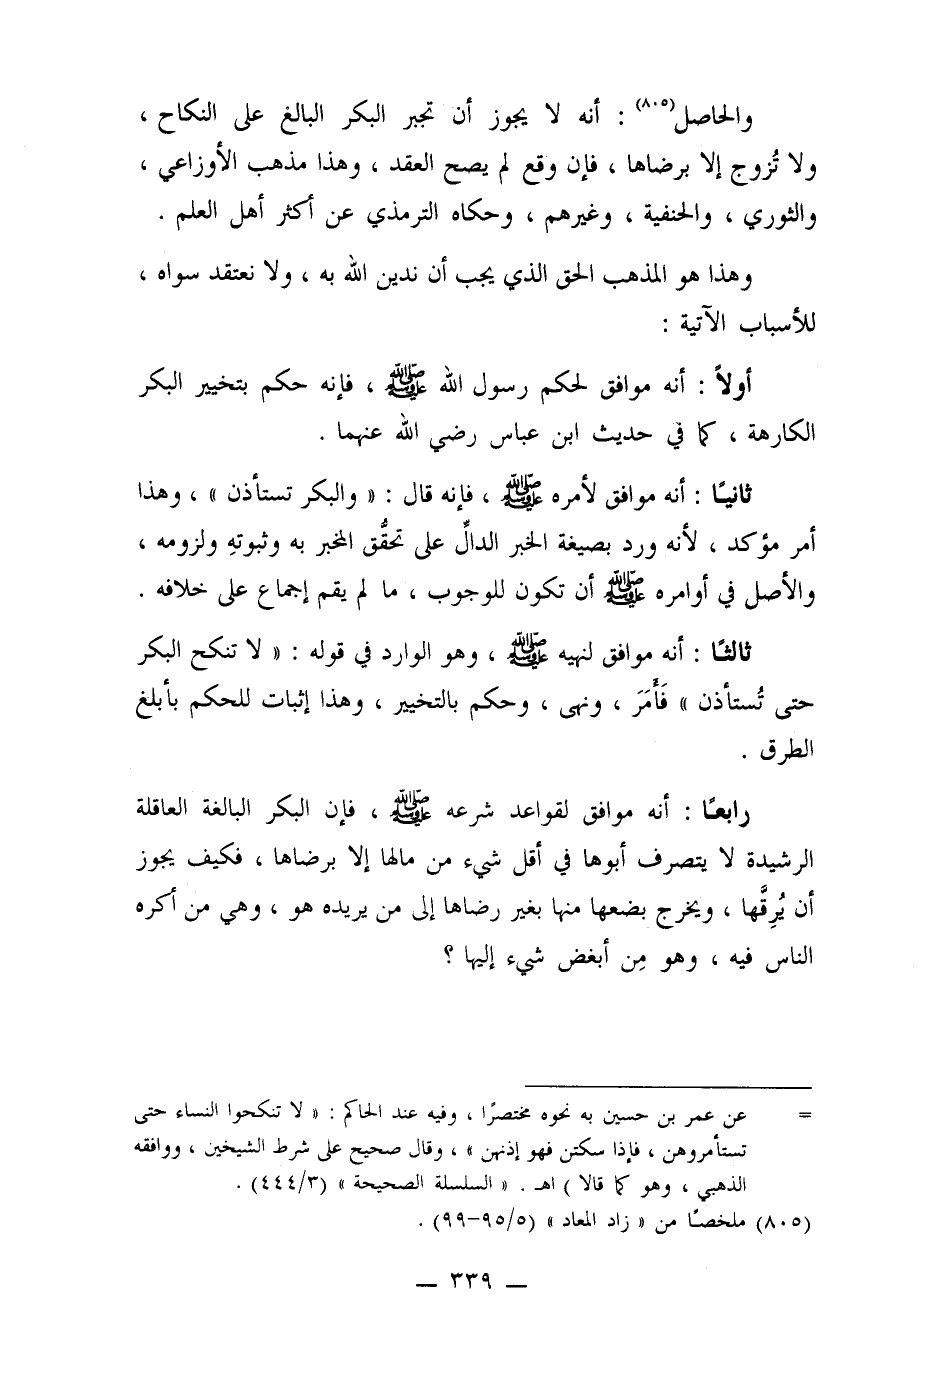 والحاصل(٨٠٥) : أنه لا يجوز أن تجبر البكر البالغ على النكاح ،
ولا تُزوج إلا برضاها ، فإن وقع لم يصح العقد ، وهذا مذهب الأوزاعي ،
والثوري ، والحنفية ، وغيرهم ، وحكاه الترمذي عن أكثر أهل العلم .
وهذا هو المذهب الحق الذي يجب أن ندين الله به ، ولا نعتقد سواه ،
للأسباب الآتية :
أولاً : أنه موافق لحكم رسول الله ﷺ ، فإنه حكم بتخيير البكر
الكارهة ، كما في حديث ابن عباس رضي الله عنهما .
ثانيًا : أنه موافق لأمره ﷺ ، فإنه قال : « والبكر تستأذن » ، وهذا
أمر مؤكد ، لأنه ورد بصيغة الخبر الدالِّ على تحقُّق المخبر به وثبوتهِ ولزومه ،
والأصل في أوامره ﷺ أن تكون للوجوب ، ما لم يقم إجماع على خلافه .
ثالثًا : أنه موافق لنهيه ﷺ ، وهو الوارد في قوله : « لا تنكح البكر
حتى تُستأذن » فَأَمَرَ ، ونهى ، وحكم بالتخيير ، وهذا إثبات للحكم بأبلغ
الطرق .
رابعًا : أنه موافق لقواعد شرعه ﷺ ، فإن البكر البالغة العاقلة
الرشيدة لا يتصرف أبوها في أقل شيء من مالها إلا برضاها ، فكيف يجوز
أن يُرِقَّها ، ويخرج بضعها منها بغير رضاها إلى من يريده هو ، وهي من أكره
الناس فيه ، وهو مِن أبغض شيء إليها ؟
= عن عمر بن حسين به نحوه مختصرًا ، وفيه عند الحاكم : « لا تنكحوا النساء حتى
تستأمروهن ، فإذا سكتن فهو إذنهن » ، وقال صحيح على شرط الشيخين ، ووافقه
الذهبي ، وهو كما قالا ) اهـ . « السلسلة الصحيحة » (٤٤٤/٣) .
(٨٠٥) ملخصًا من « زاد المعاد » (٩٥/٥–٩٩) .
— ٣٣٩ —